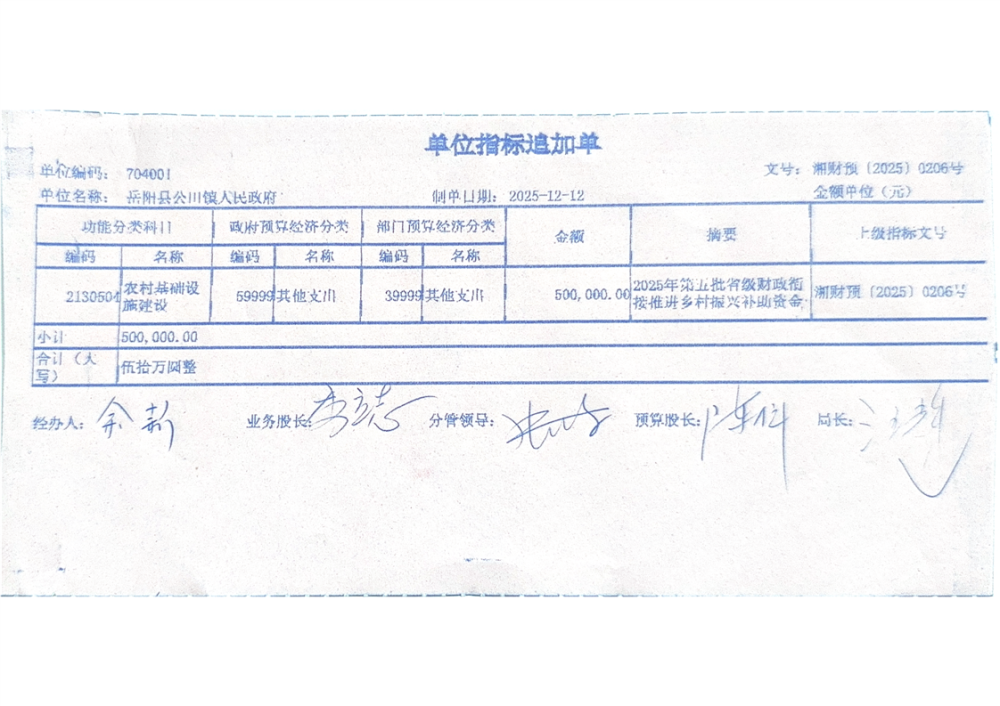 单位指标追加单
单位编码： 704001 文号： 湘财预〔2025〕0206号
单位名称： 岳阳县公田镇人民政府 制单日期： 2025-12-12 金额单位（元）
功能分类科目 政府预算经济分类 部门预算经济分类 金额 摘要 上级指标文号
编码 名称 编码 名称 编码 名称
2130504 农村基础设施建设 59999 其他支出 39999 其他支出 500,000.00 2025年第五批省级财政衔接推进乡村振兴补助资金 湘财预〔2025〕0206号
小计 500,000.00
合计（大写） 伍拾万圆整
经办人： 余新 业务股长： 李立志 分管领导： 预算股长： 局长：